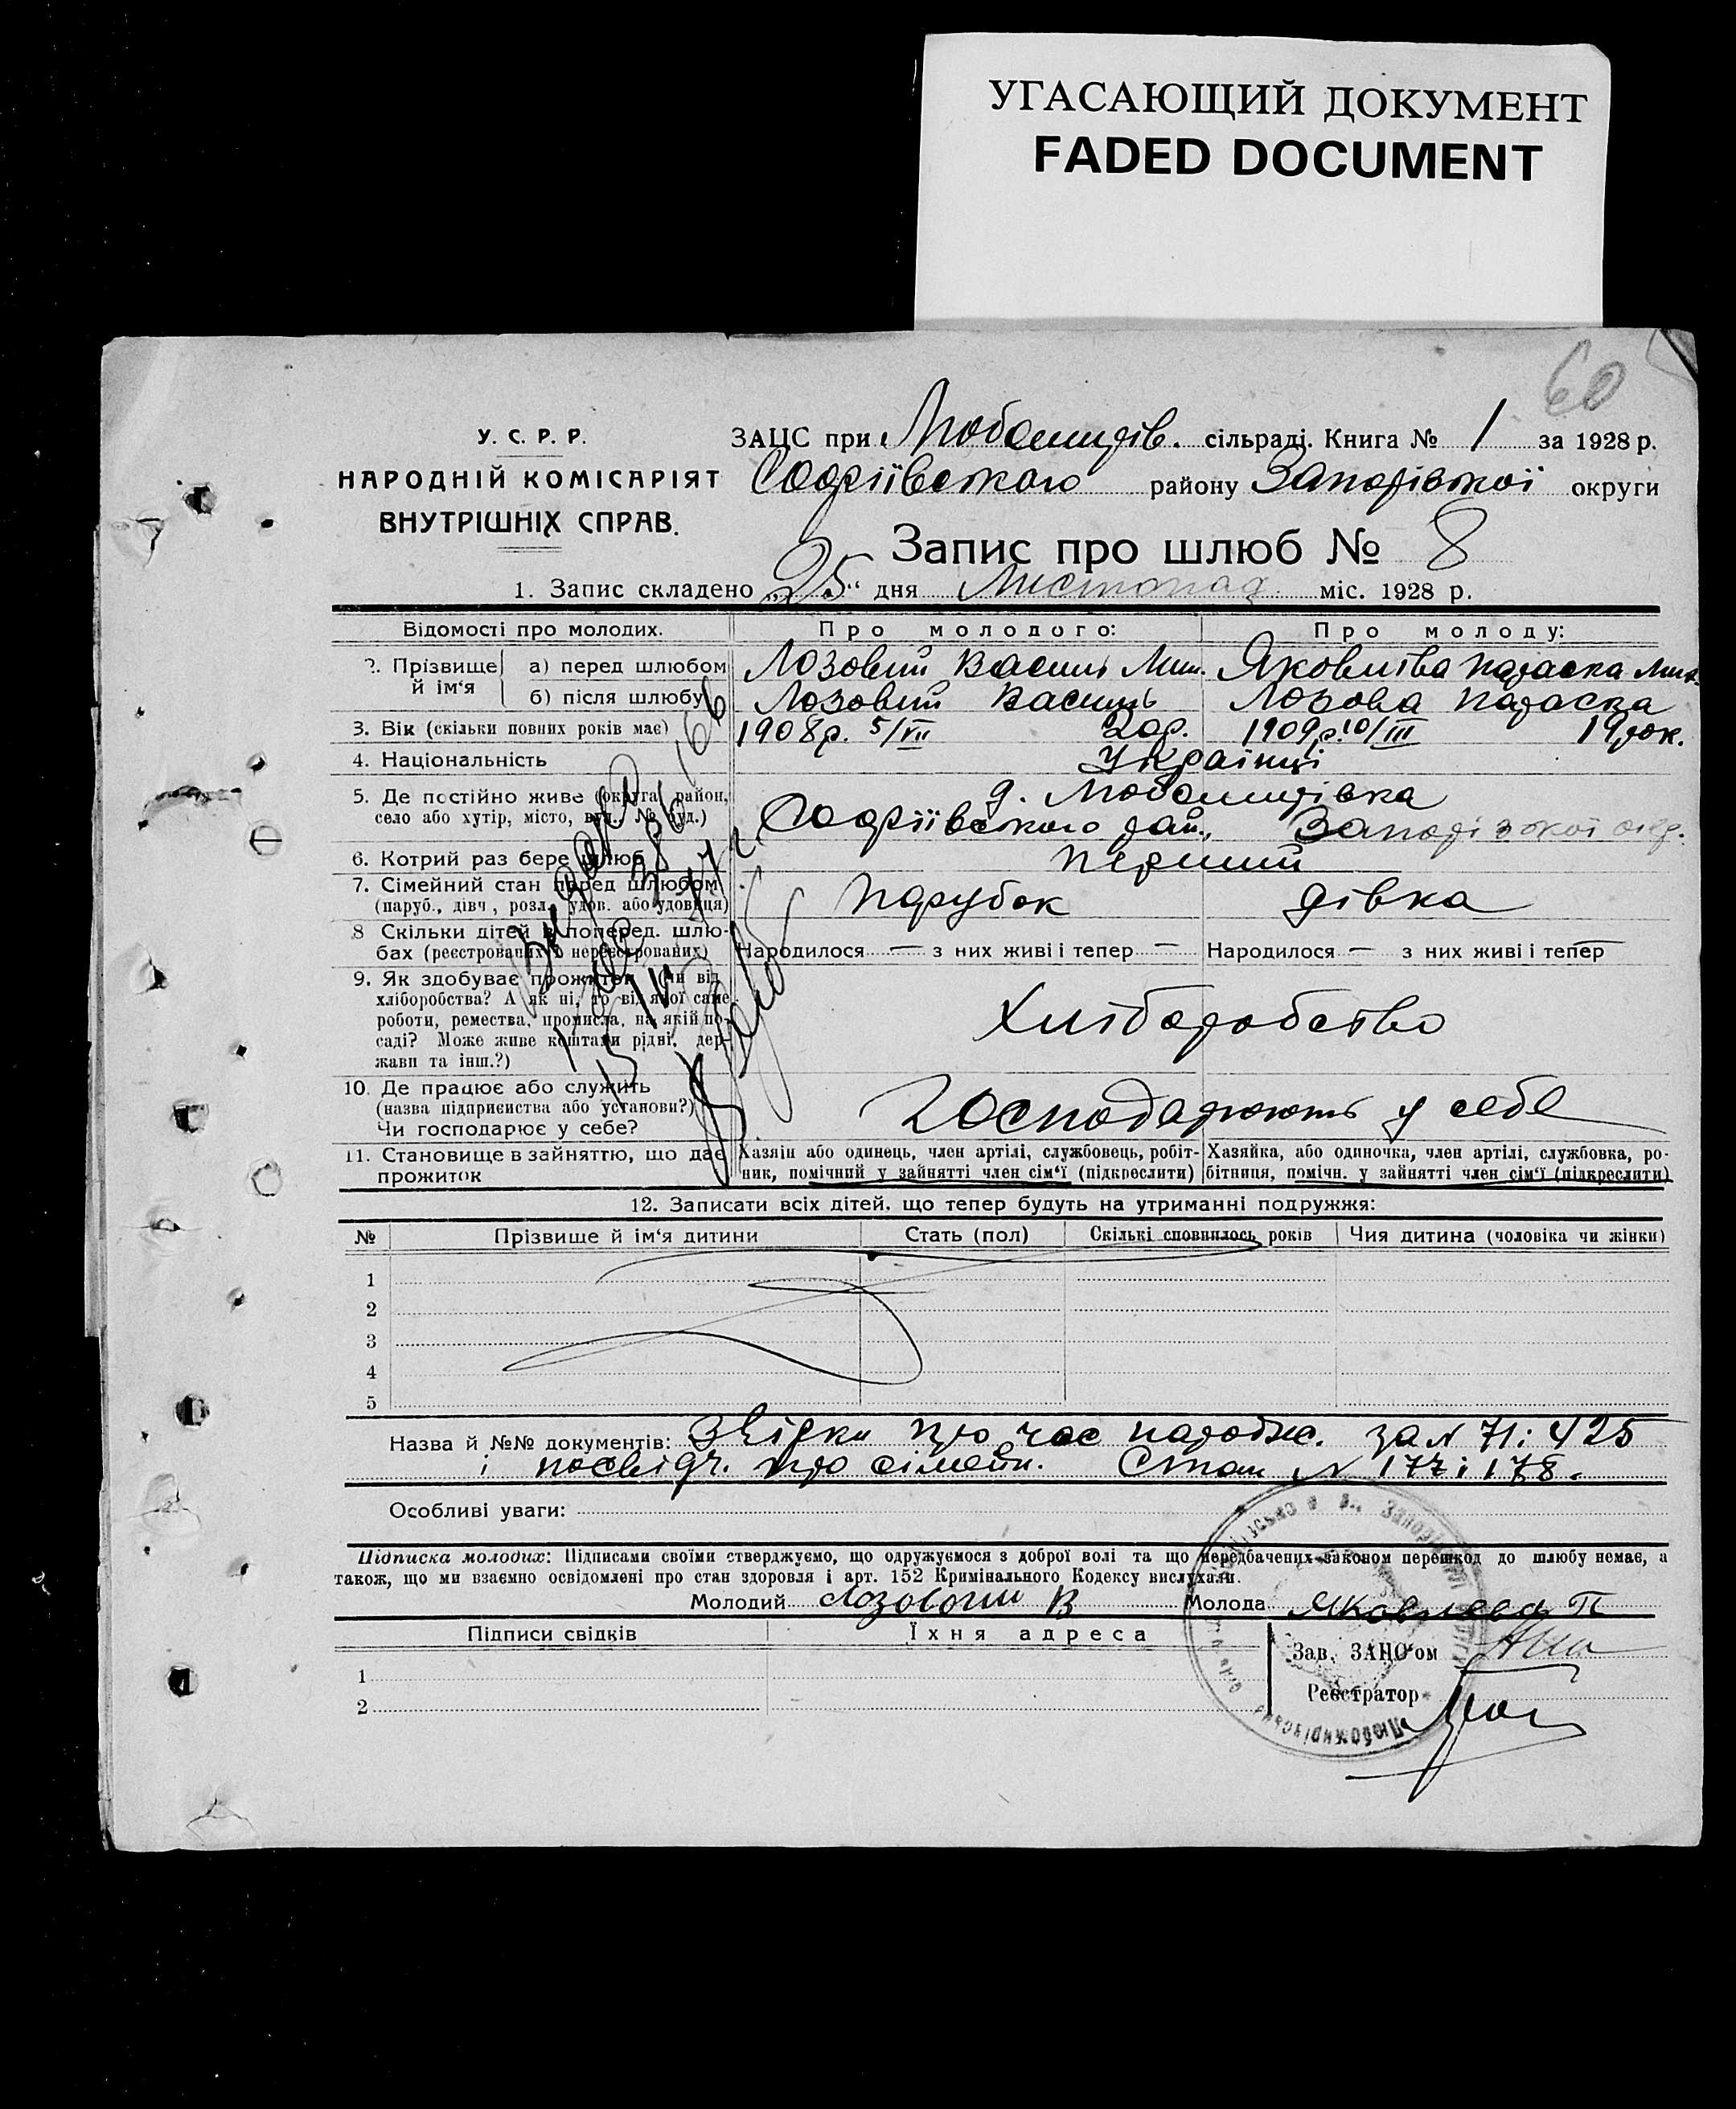 УГАСАЮЩИЙ ДОКУМЕНТ
FADED DOCUMENT
60
У. С. Р. Р.
НАРОДНІЙ КОМІСАРІЯТ
ВНУТРІШНІХ СПРАВ.
ЗАЦС при Любомирів. сільраді. Книга № 1 за 1928 р.
Софіївського району Запорізької округи
Запис про шлюб № 8
1. Запис складено „25“ дня Листопад міс. 1928 р.
Відомості про молодих. Про молодого: Про молоду:
2. Прізвище й ім‘я а) перед шлюбом Лозовий Василь Мик. Яковлєва Параска
б) після шлюбу Лозовий Василь Лозова Параска
3. Вік (скільки повних років має) 1908р. 5/VII 20р. 1909р. 10/III 19 рок.
4. Національність Українці
5. Де постійно живе (округа, район, село або хутір, місто, вул., № буд.) д. Любомирівка
Софіївського рай., Запорізької окр.
6. Котрий раз бере шлюб Перший
7. Сімейний стан перед шлюбом Парубок дівка
(паруб., дівч., розл., удов. або удовиця)
8 Скільки дітей в поперед. шлю-
бах (реєстрованих і нереєстрованих) Народилося — з них живі і тепер — Народилося — з них живі і тепер —
9. Як здобуває прожиток (чи від
хліборобства? А як ні, то від якої саме
роботи, ремества, промисла, на якій по-
саді? Може живе коштами рідні, дер-
жави та інш.?) Хліборобство
10. Де працює або служить
(назва підприємства або установи?)
Чи господарює у себе? Господарюють у себе
11. Становище в зайняттю, що дає
прожиток
Хазяін або одинець, член артілі, службовець, робіт-
ник, помічний у зайнятті член сім‘ї (підкреслити)
Хазяйка, або одиночка, член артілі, службовка, ро-
бітниця, помічн. у зайнятті член сім‘ї (підкреслити)
12. Записати всіх дітей, що тепер будуть на утриманні подружжя:
№ Прізвище й ім‘я дитини Стать (пол) Скількі сповнилось років Чия дитина (чоловіка чи жінки)
1
2
3
4
5
Назва й №№ документів: Звідки про час народж. за N 71 і 425
і посвідч. про сімейн. Стан N 177 і 178.
Особливі уваги:
Підписка молодих: Підписами своїми стверджуємо, що одружуємося з доброї волі та що передбачених законом перешкод до шлюбу немає, а
також, що ми взаємно освідомлені про стан здоровля і арт. 152 Кримінального Кодексу вислухали.
Молодий Лозовий В Молода Яковлева П
Підписи свідків Їхня адреса
Зав. ЗАЦС‘ом
1
Реєстратор
2